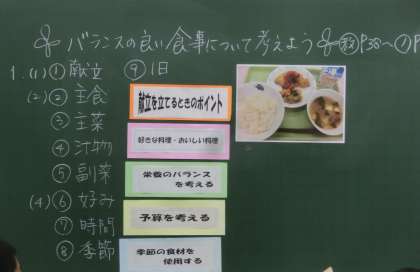 バランスの良い食事について考えよう 教 P38~ ① P
1. (1) ① 献立 ⑨ 1日
(2) ② 主食
③ 主菜
④ 汁物
⑤ 副菜
(4) ⑥ 好み
⑦ 時間
⑧ 季節
献立を立てるときのポイント
好きな料理・おいしい料理
栄養のバランス
を考える
予算を考える
季節の食材を
使用する